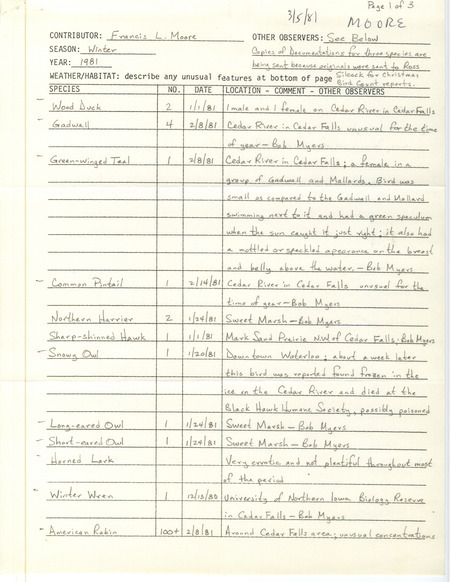 Page 1 of 3
3/5/81 MOORE
CONTRIBUTOR: Francis L. Moore OTHER OBSERVERS: See Below
SEASON: Winter Copies of Documentations for three species are
YEAR: 1981 being sent because originals were sent to Ross
WEATHER/HABITAT: describe any unusual features at bottom of page Silcock for Christmas
Bird Count reports.
SPECIES NO. DATE LOCATION - COMMENT - OTHER OBSERVERS
- Wood Duck 2 1/1/81 1 male and 1 female on Cedar River in Cedar Falls
- Gadwall 4 2/8/81 Cedar River in Cedar Falls unusual for the time
of year - Bob Myers
- Green-Winged Teal 1 2/8/81 Cedar River in Cedar Falls; a female in a
group of Gadwall and Mallards. Bird was
small as compared to the Gadwall and Mallard
swimming next to it and had a green speculum
when the sun caught it just right; it also had
a mottled or speckled apearance on the breast
and belly above the water. - Bob Myers
- Common Pintail 1 2/14/81 Cedar River in Cedar Falls unusual for the
time of year - Bob Myers
Northern Harrier 2 1/24/81 Sweet Marsh - Bob Myers
Sharp-shinned Hawk 1 1/1/81 Mark Sand Prairie N.W of Cedar Falls; Bob Myers
- Snowy Owl 1 1/20/81 Downtown Waterloo; about a week later
this bird was reported found frozen in the
ice on the Cedar River and died at the
Black Hawk Humane Society, possibly poisoned
- Long-eared Owl 1 1/24/81 Sweet Marsh - Bob Myers
- Short-eared Owl 1 1/24/81 Sweet Marsh - Bob Myers
- Horned Lark Very erratic and not plentiful throughout most
of the period
- Winter Wren 1 12/13/80 University of Northern Iowa Biology Reserve
in Cedar Falls - Bob Myers
- American Robin 100+ 2/8/81 Around Cedar Falls area; unusual concentrations